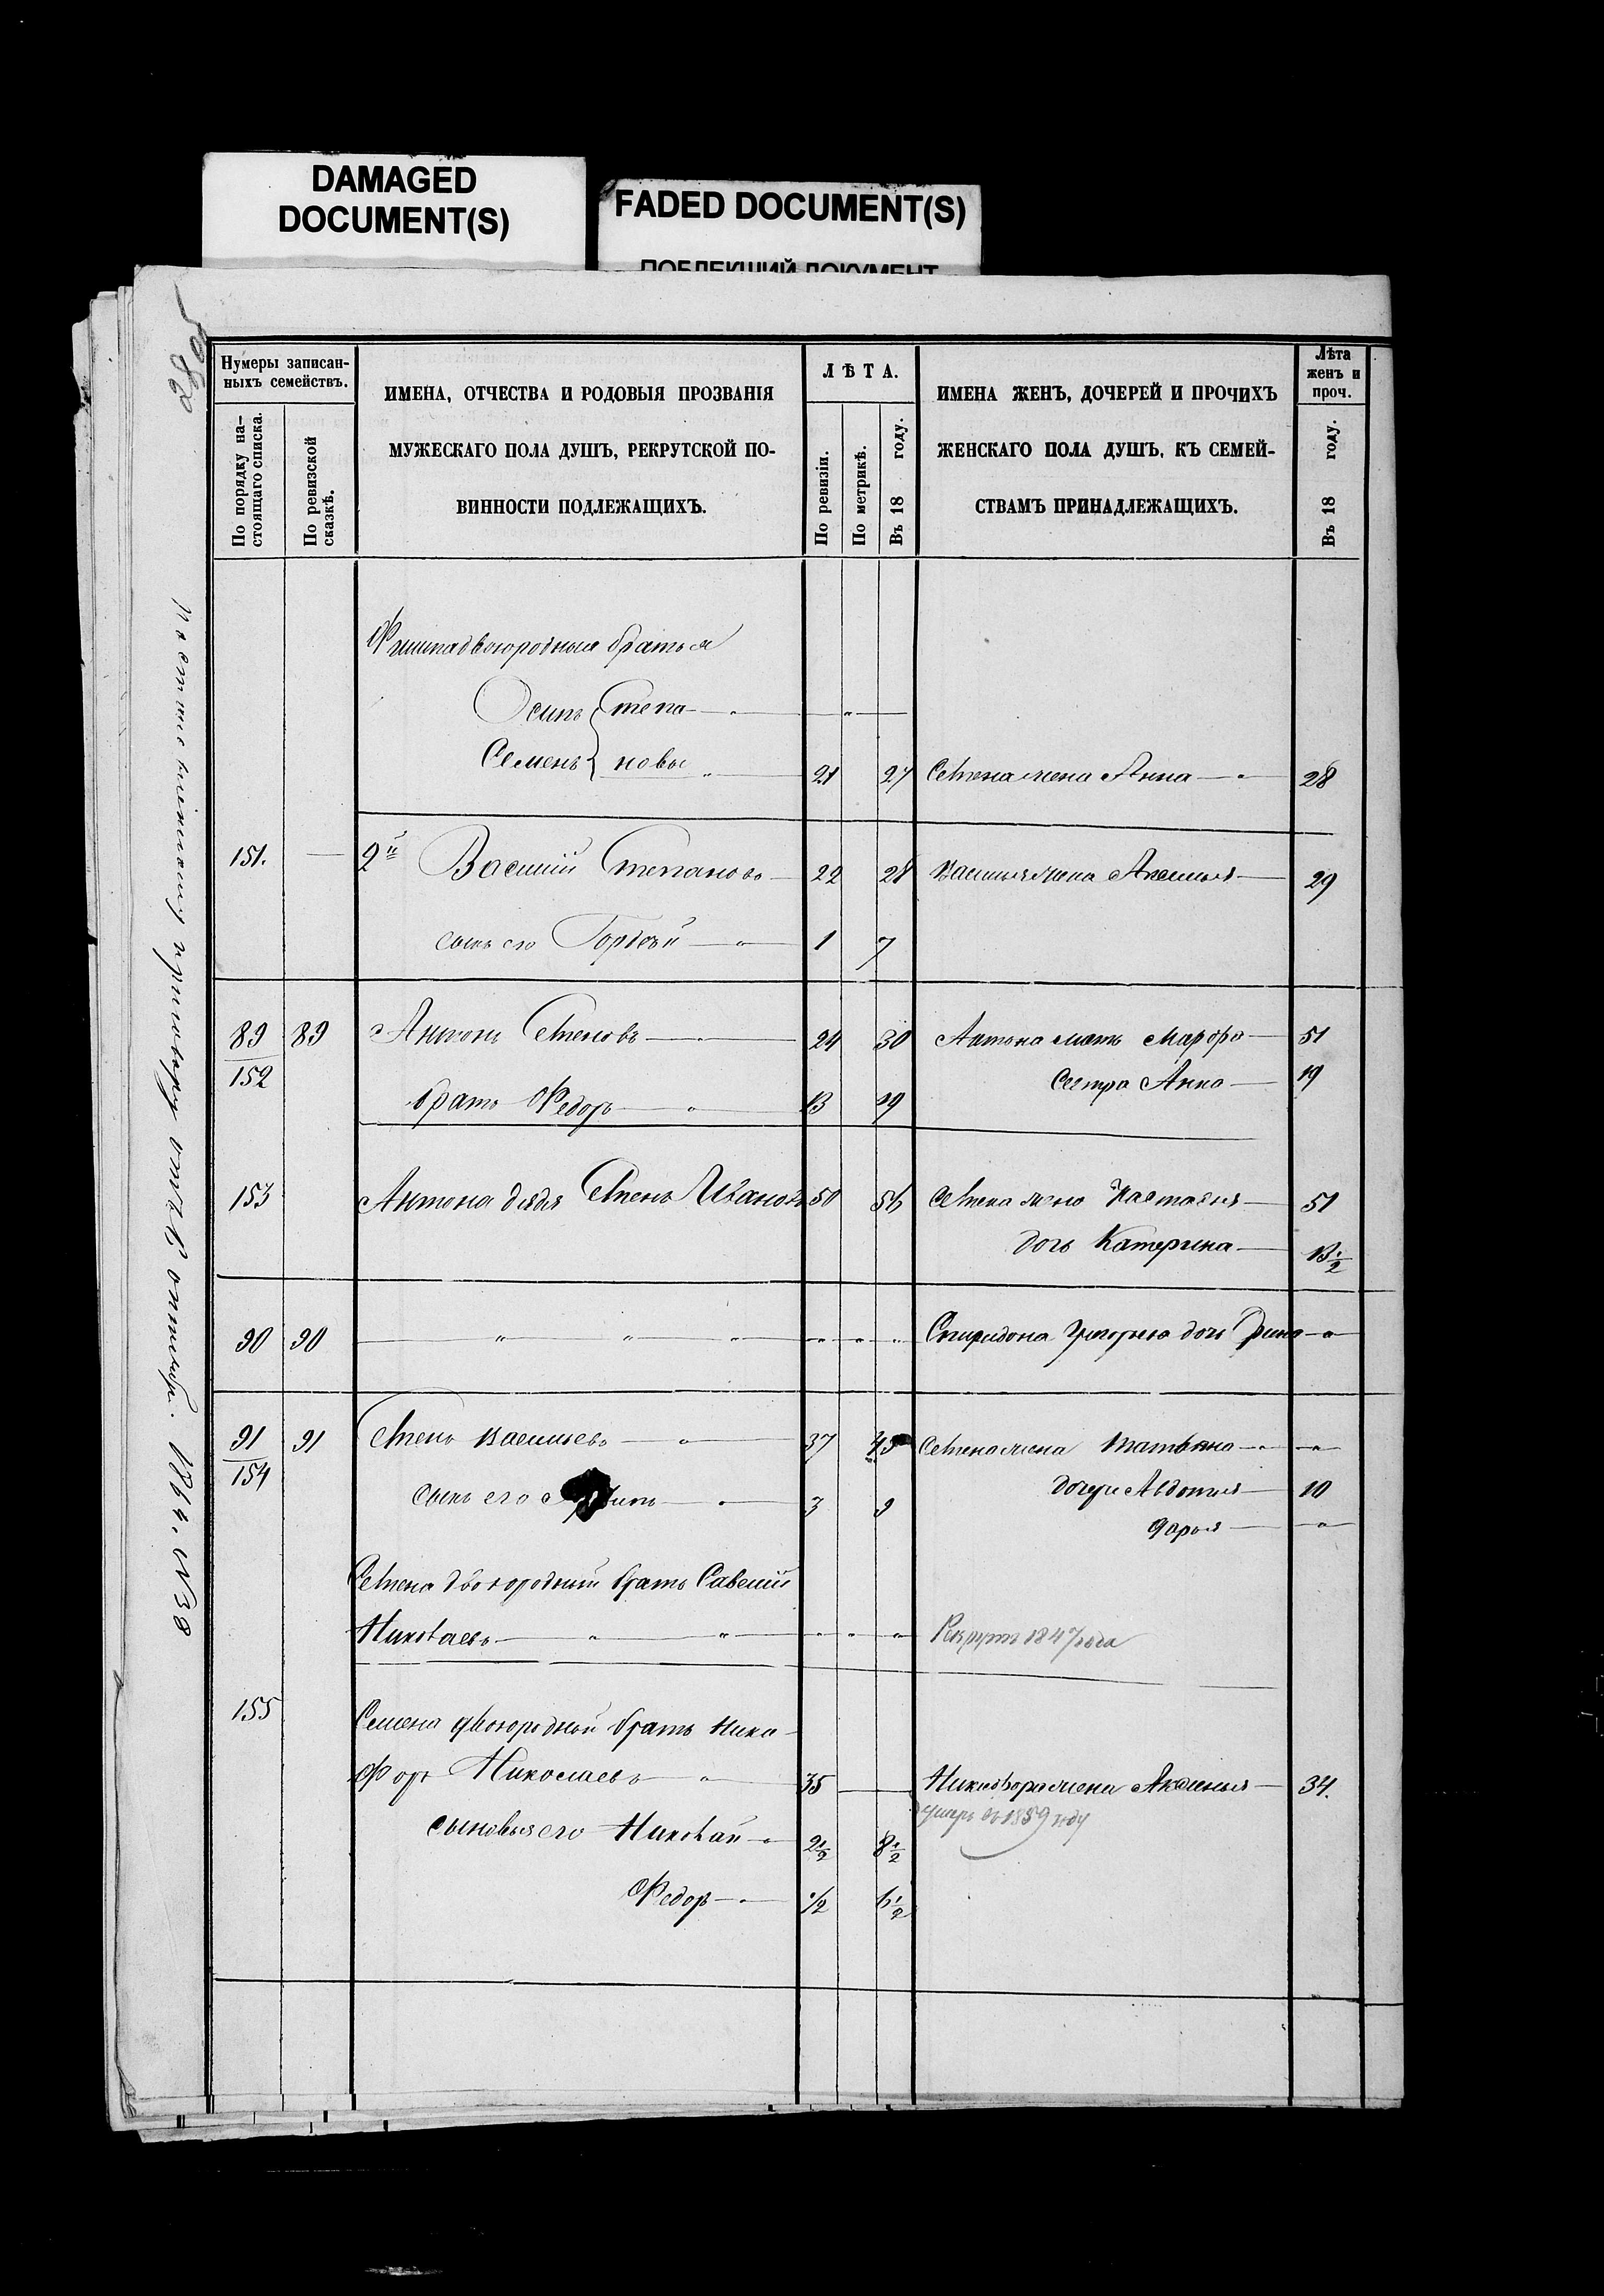 DAMAGED
DOCUMENT(S)
FADED DOCUMENT(S)
ПОБЛЕКШИЙ ДОКУМЕНТ
Нумеры записан-
ныхъ семействъ.
По порядку на-
стоящаго списка.
По ревизской
сказкѣ.
ИМЕНА, ОТЧЕСТВА И РОДОВЫЯ ПРОЗВАНІЯ
МУЖЕСКАГО ПОЛА ДУШЪ, РЕКРУТСКОЙ ПО-
ВИННОСТИ ПОДЛЕЖАЩИХЪ.
ЛѢТА.
По ревизіи.
По метрикѣ.
Въ 18 году.
ИМЕНА ЖЕНЪ, ДОЧЕРЕЙ И ПРОЧИХЪ
ЖЕНСКАГО ПОЛА ДУШЪ, КЪ СЕМЕЙ-
СТВАМЪ ПРИНАДЛЕЖАЩИХЪ.
Лѣта
женъ и
проч.
Въ 18 году.
двоюродныя братья
Осипъ Степа-
Семенъ новы 21 27 Семена жена Анна 28
151. 2й Василій Степановъ 22 28 Василья жена Аксинья 29
сынъ его Гордѣй 1 7
89 89 Антонъ Семеновъ 24 30 Антона мать Марфа 51
152 Сестра Анна 19
братъ Федоръ 13 19
153 Антона дядя Семенъ Ивановъ 50 56 Семена жена Настасья 51
дочь Катерина 13 1/2
90 90 Спиридона Григорьева дочь Арина
91 91 Семенъ Васильевъ 37 43 Семена жена Татьяна
154 сынъ его 3 9 дочери Авдотья 10
Дарья
Семена двоюродный братъ Савелій
Николаевъ Рекрутъ 1847 года
155 Семена двоюродный братъ Ники-
форъ Николаевъ 35 Никифора жена Аксинья 34.
умеръ въ 1859 году
сыновья его Николай 2 1/2 8 1/2
Федоръ 1/2 6 1/2
1864. №38